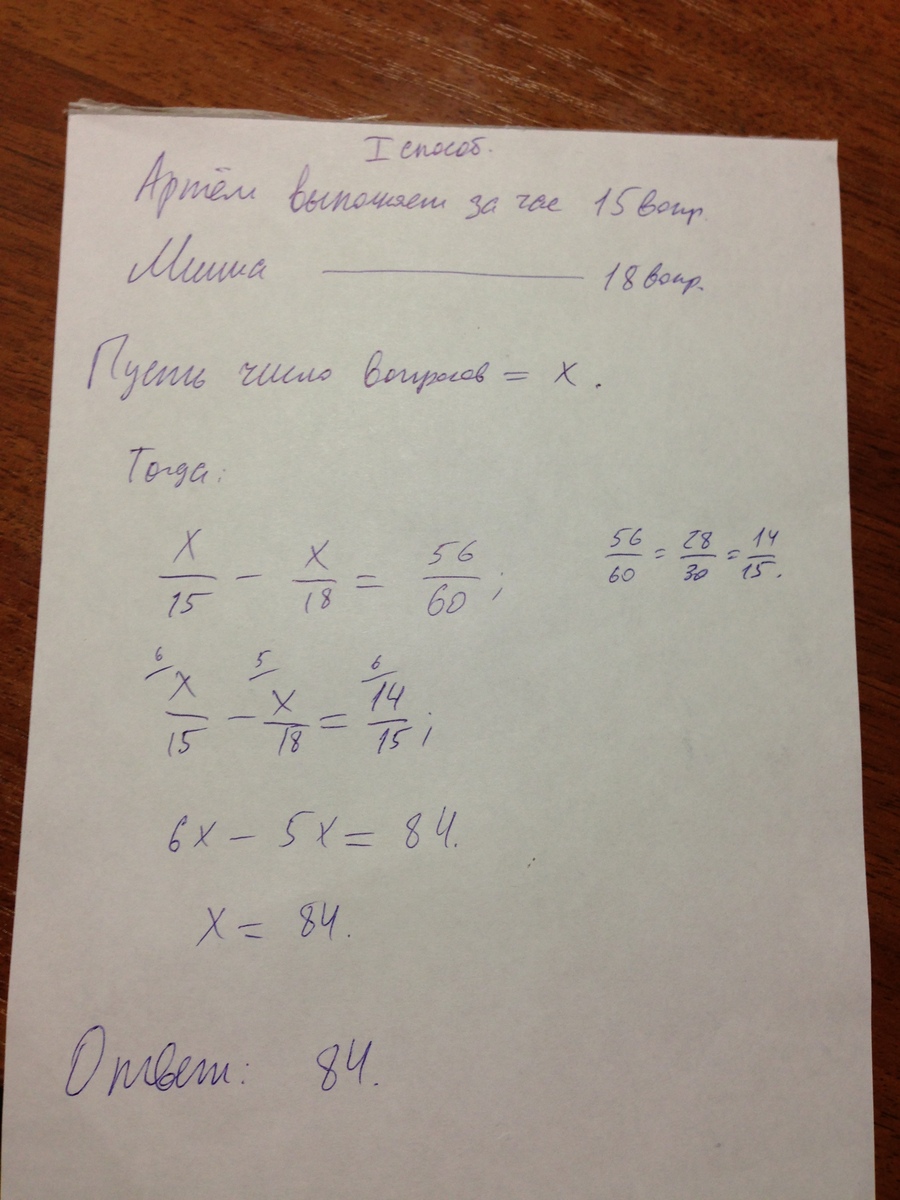 I способ.
Артём выполняет за час 15 вопр.
Миша ———— 18 вопр.
Пусть число вопросов = x.
Тогда:
x/15 - x/18 = 56/60; 56/60 = 28/30 = 14/15.
6/ x/15 - 5/ x/18 = 6/ 14/15;
6x - 5x = 84.
x = 84.
Ответ: 84.